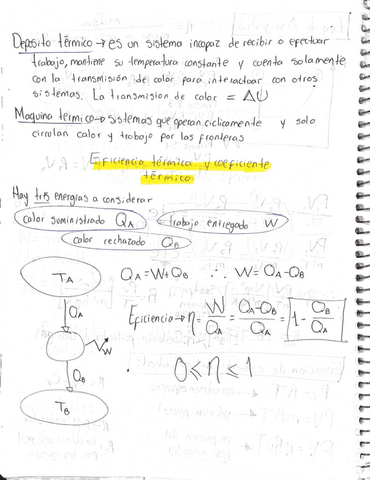 Deposito térmico → es un sistema incapaz de recibir o efectuar
trabajo, mantiene su temperatura constante y cuenta solamente
con la transmisión de calor para interactuar con otros
sistemas. La transmision de calor = ΔU
Maquina termico → sistemas que operan ciclicamente y solo
circulan calor y trabajo por las fronteras
Eficiencia térmica y coeficiente
térmico
Hay tres energias a considerar
calor suministrado QA trabajo entregado W
calor rechazado QB
TA
QA
W
QB
TB
QA = W + QB ∴ W = QA - QB
Eficiencia → η = W/QA = (QA - QB)/QA = 1 - QB/QA
0 ≤ η ≤ 1